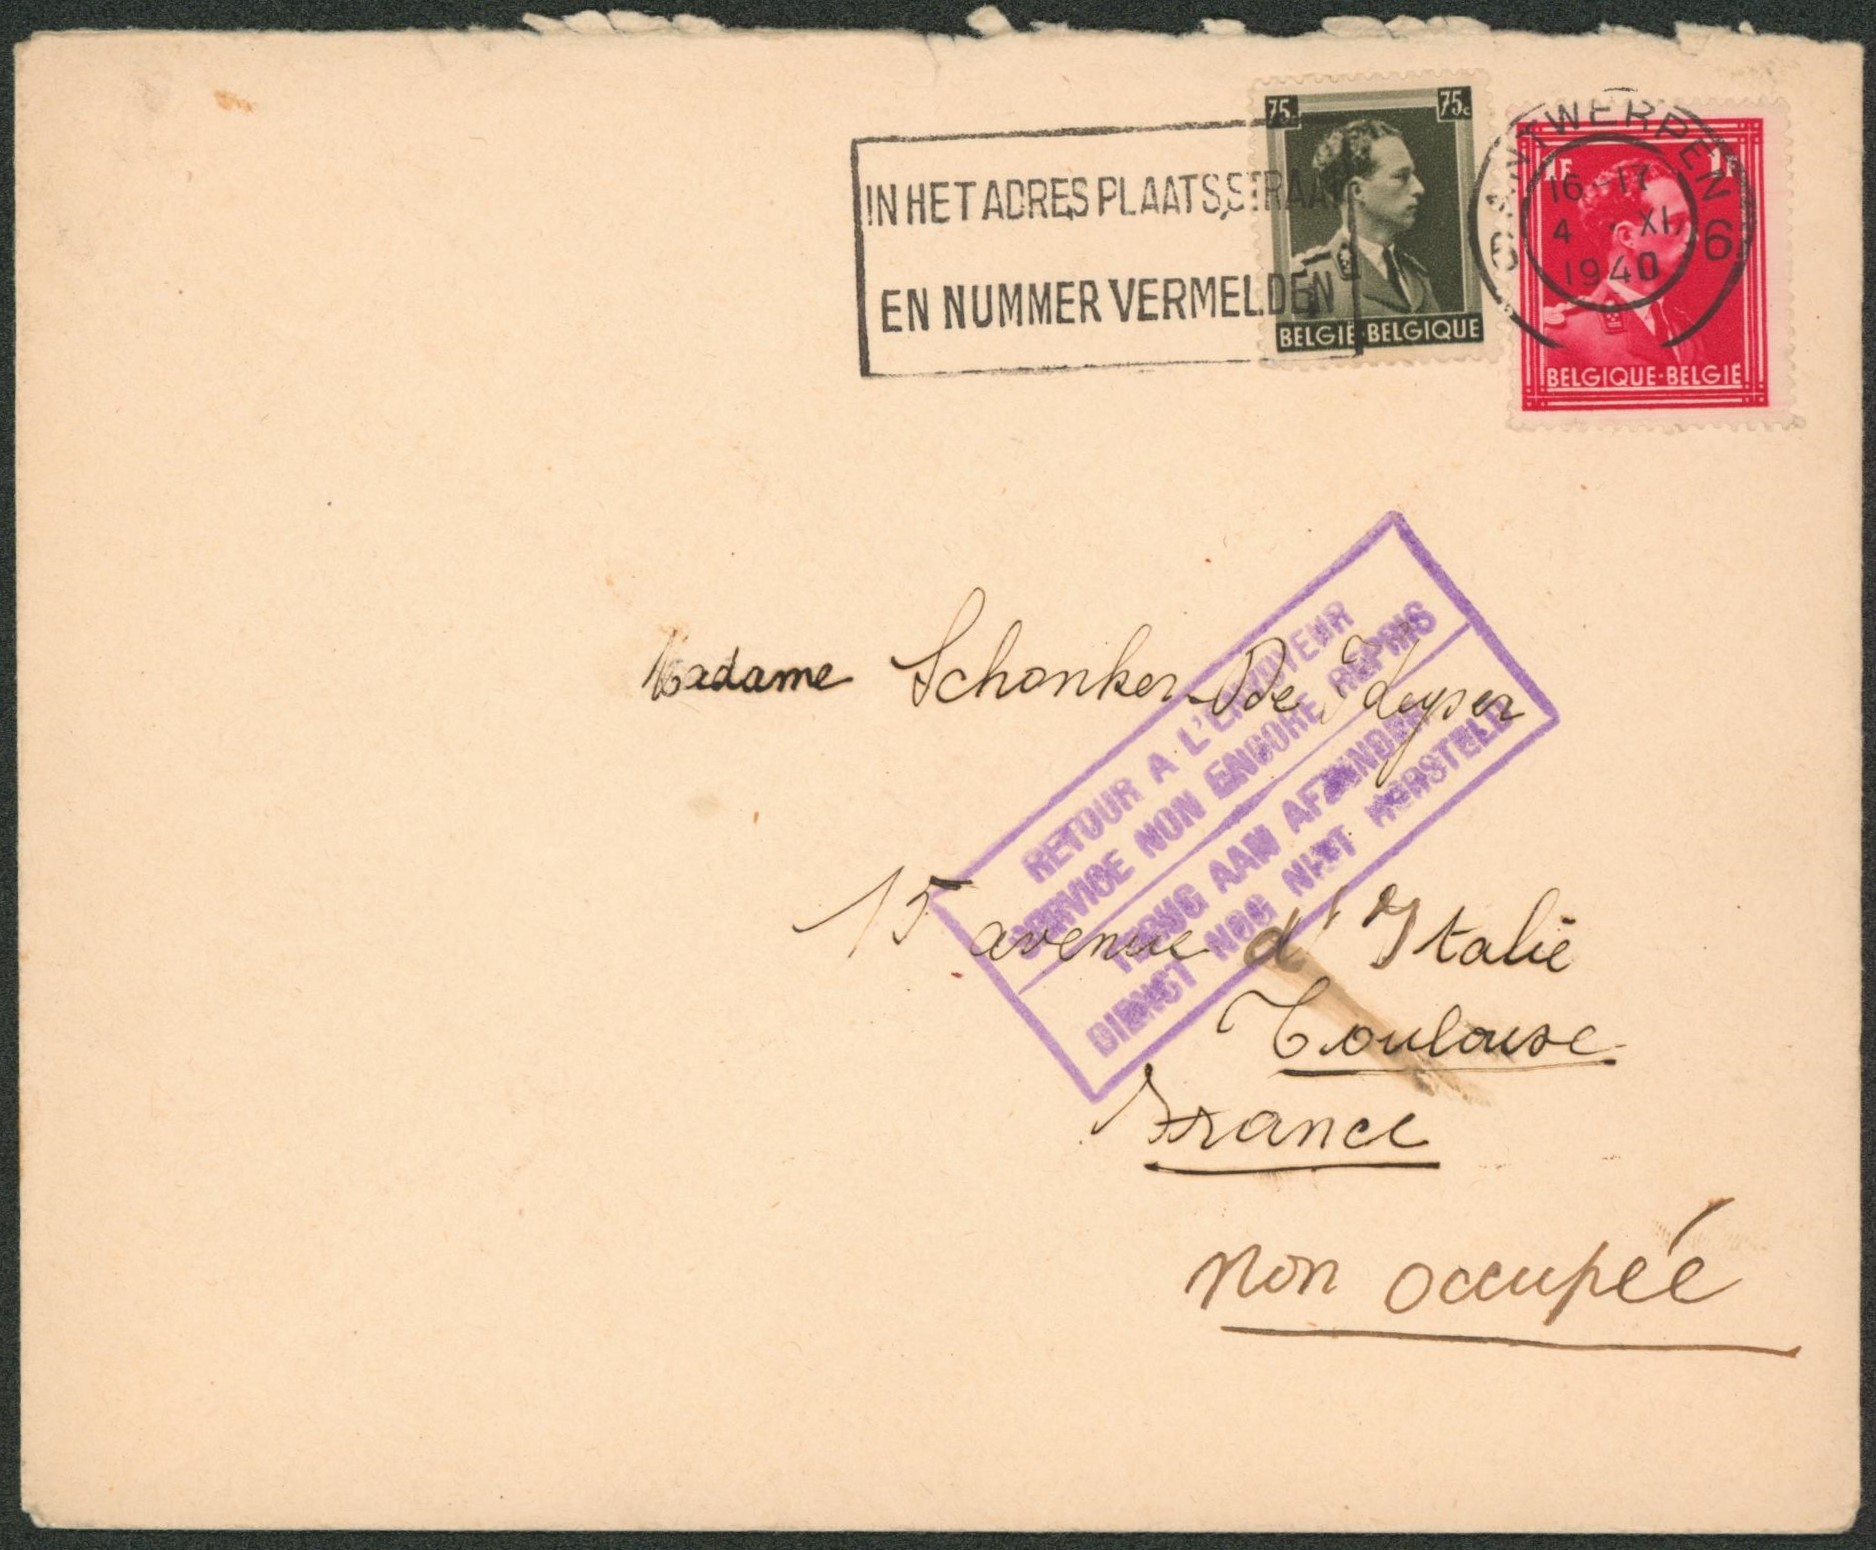 75c 75c
BELGIË-BELGIQUE
1F 1F
BELGIQUE-BELGIË
IN HET ADRES PLAATS, STRAAT
EN NUMMER VERMELDEN
ANTWERPEN
6 6
16-17
4 - XI
1940
RETOUR A L'ENVOYEUR
SERVICE NON ENCORE REPRIS
TERUG AAN AFZENDER
DIENST NOG NIET HERSTELD
Madame Schonker-De Keyser
15 avenue d'Italie
Toulouse
France
non occupée